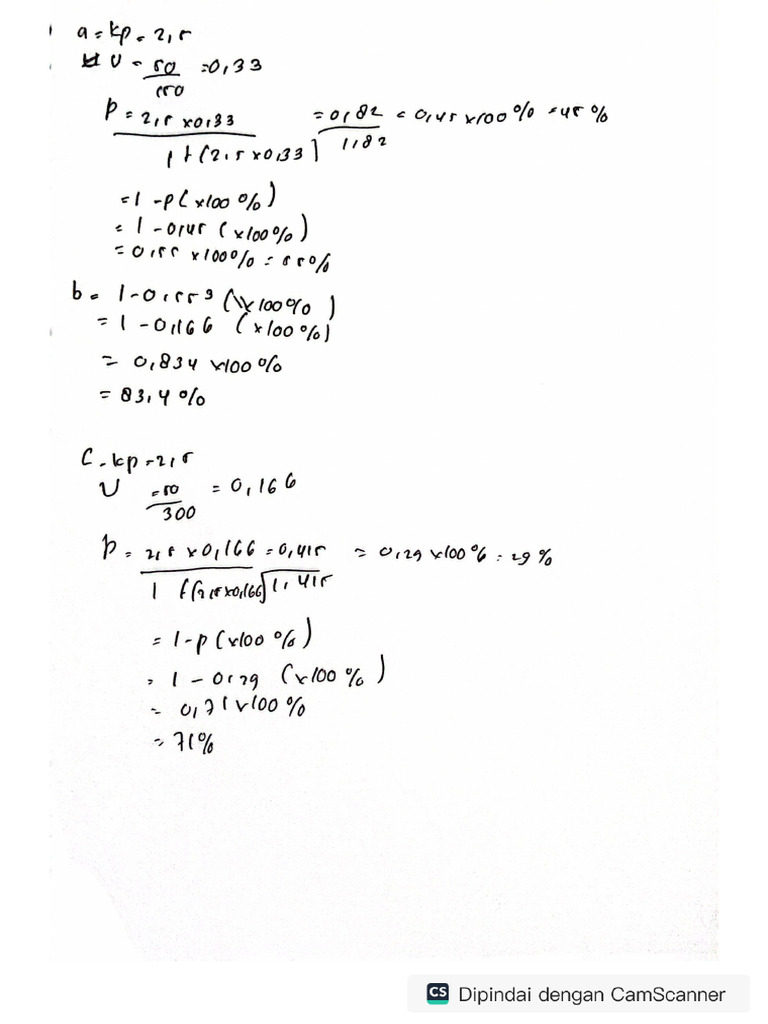 1 a = kp = 2,5
U = 50/150 = 0,33
P = 2,5 x 0,33 / 1 + (2,5 x 0,33) = 0,82 / 1,82 = 0,45 x 100 % = 45 %
= 1 - P (x 100 %)
= 1 - 0,45 (x 100 %)
= 0,55 x 100 % = 55 %
b = 1 - 0,55³ (x 100 %)
= 1 - 0,166 (x 100 %)
= 0,834 x 100 %
= 83,4 %
C - kp = 2,5
U = 50/300 = 0,166
P = 2,5 x 0,166 / 1 + (2,5 x 0,166) = 0,415 / 1,415 = 0,29 x 100 % = 29 %
= 1 - P (x 100 %)
= 1 - 0,29 (x 100 %)
= 0,71 x 100 %
= 71 %
CS Dipindai dengan CamScanner